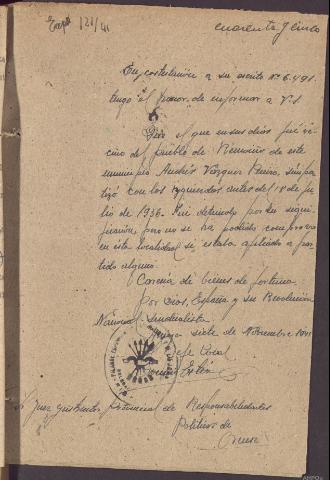 Expte 121/41
cuarenta y cinco
En contestación a su escrito nº 6.491
tengo el honor de informar a V.S.
Que el que en sus dias fué ve-
cino del pueblo de de este
municipio Andrés Vázquez simpa-
tizó con las izquierdas antes del 18 de Ju-
lio de 1936. Fué detenido por
pero no se ha podido comprobar
en esta localidad si estaba afiliado a par-
tido alguno.
Carecia de bienes de fortuna.
Por Dios, España y su Revolución
Nacional Sindicalista
siete de Noviembre 1941
Jefe Local
Sr Juez Instructor Provincial de Responsabilidades
Politicas de
Orense